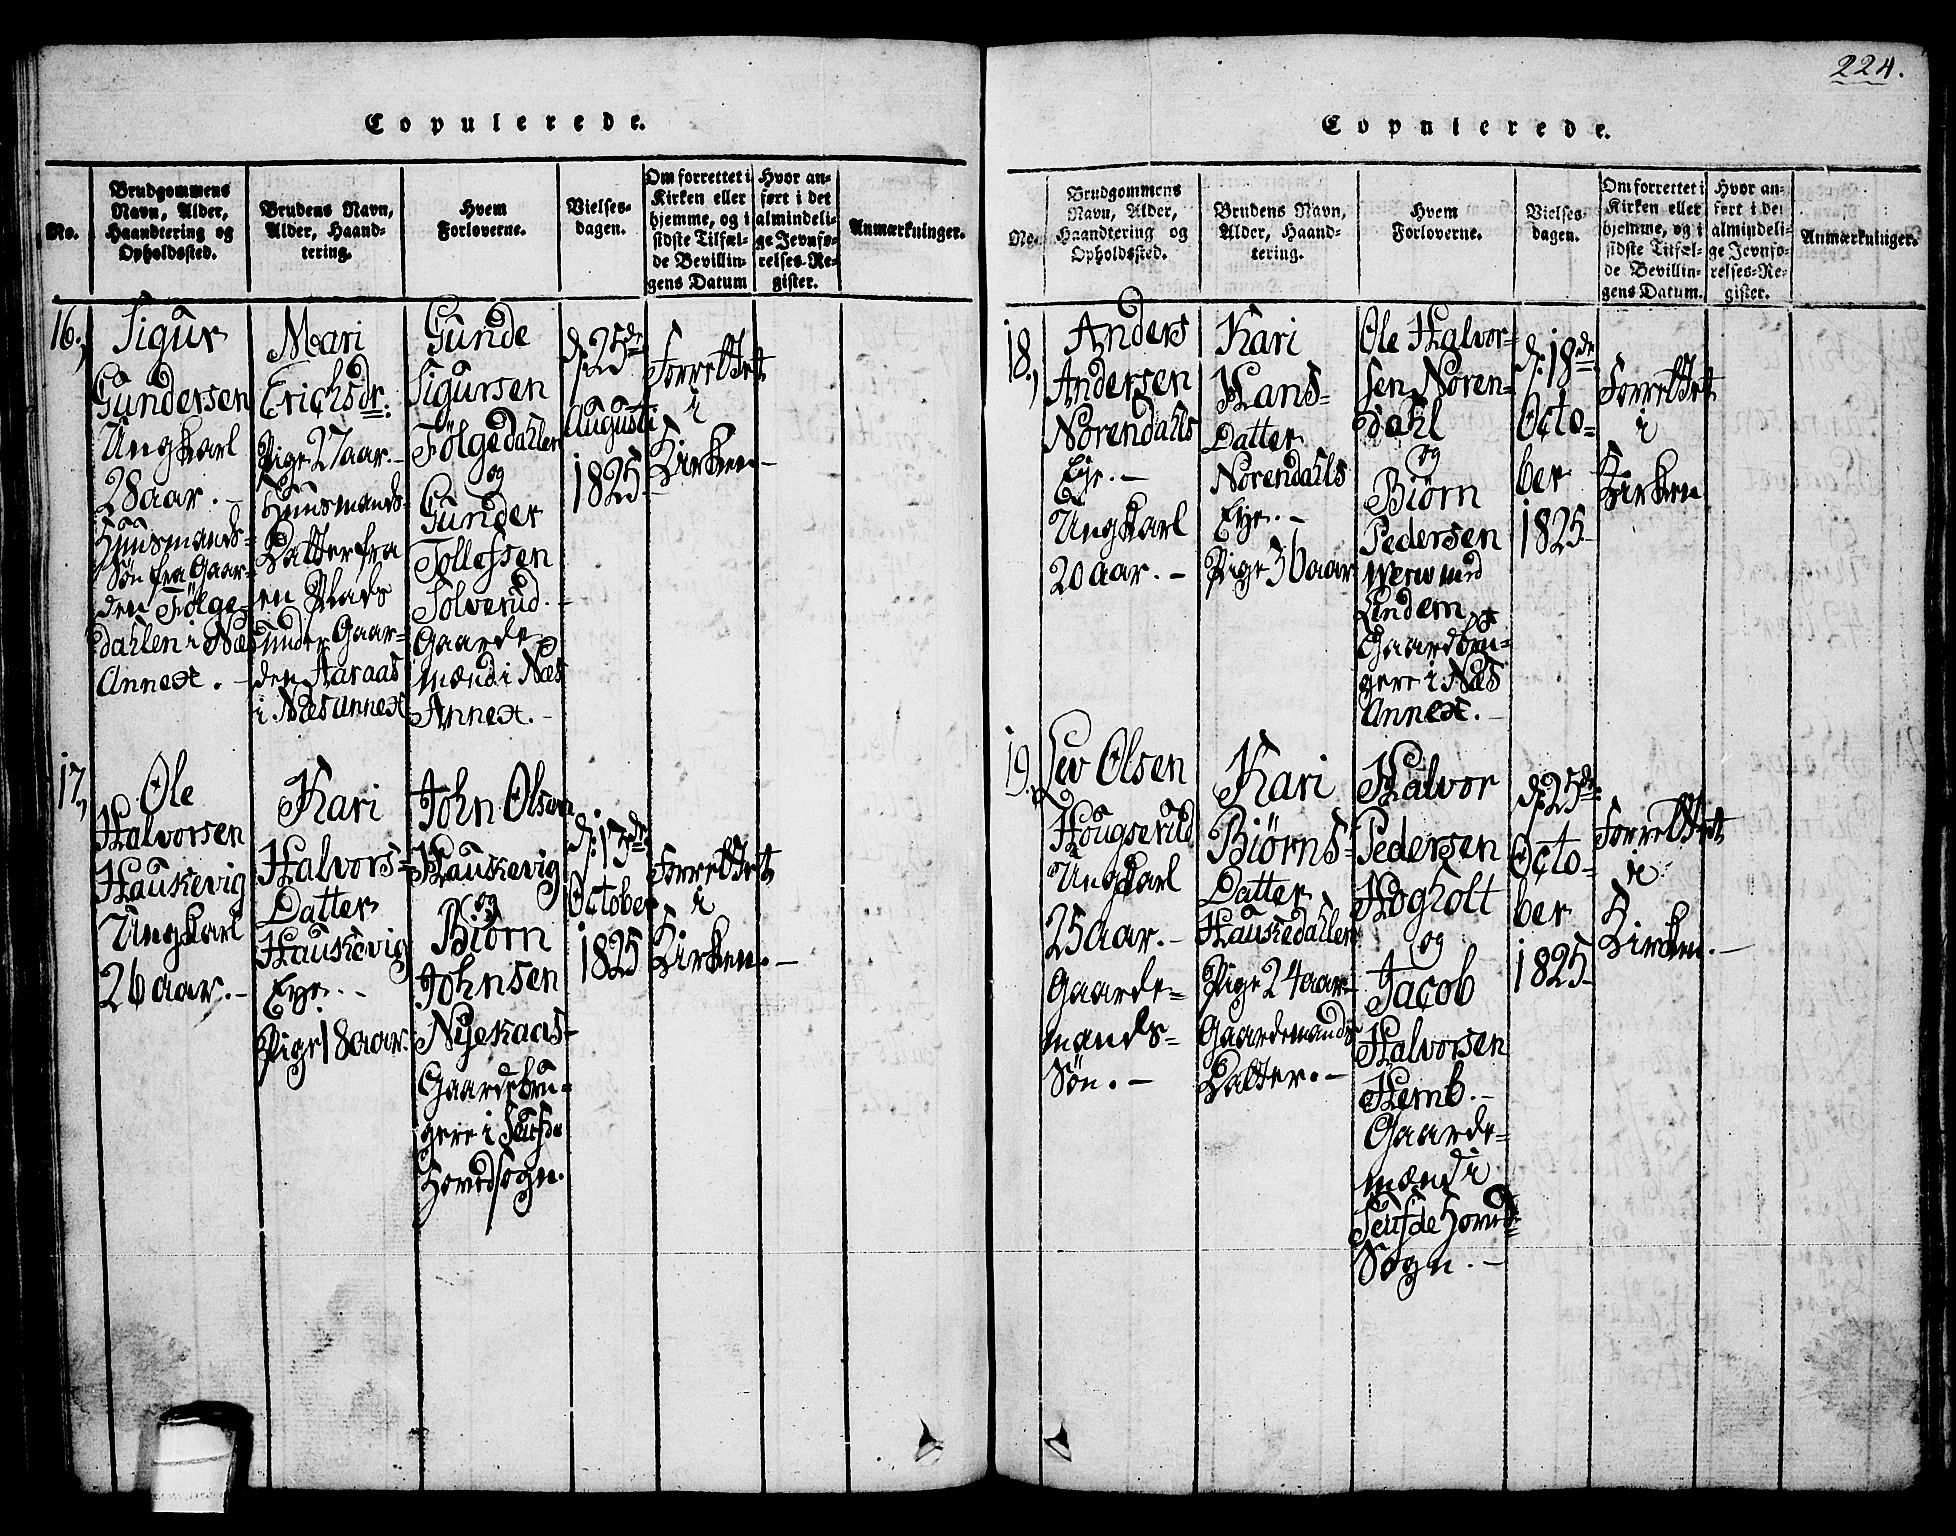 Copulerede.
No.
Brudgommens
Navn, Alder,
Haandtering og
Opholdssted.
Brudens Navn,
Alder, Haand-
tering.
Hvem
Forloverne.
Vielses-
dagen.
Om forrettet i
Kirken eller
hjemme, og i
sidste Tilfæl-
de Bevillin-
gens Datum
Hvor an-
ført i det
almindeli-
ge Jevnfø-
relses-Re-
gister.
Anmærkninger.
16.,
Sigur
Gundersen
Ungkarl
28 aar. -
Huusmands-
Søn fra Gaar-
den Følge-
dahlen i Næs
Annex. -
Mari
Erichsdr:
Pige 27 aar. -
Huusmands-
Datter fra
en Plads
under Gaar-
den Aaraas
i Næs Annex
Gunde
Sigursen
Følgedahlen
og
Gunder
Tollefsen
Solverud. -
Gaarde-
mænd i Næs
Annex. -
d: 25de
Augusti
1825. -
Forrettet
i
Kirken -
17.,
Ole
Halvorsen
Haukevig
Ungkarl
26 aar. -
Kari
Halvors-
Datter
Haukevig
Eye. -
Pige 18 aar.
John Olsen
Haukevig
og
Biørn
Johnsen
Nyekaas-
Gaardebru-
gere i Seufde
Hovedsogn.
d: 13de
October
1825
Forrettet
i
Kirken. -
224.
Copulerede.
No.
Brudgommens
Navn, Alder,
Haandtering og
Opholdssted.
Brudens Navn,
Alder, Haand-
tering.
Hvem
Forloverne.
Vielses-
dagen.
Om forrettet i
Kirken eller
hjemme, og i
sidste Tilfæl-
de Bevillin-
gens Datum.
Hvor an-
ført i det
almindeli-
ge Jevnfø-
relses-Re-
gister.
Anmærkninger.
18.,
Anders
Andersen
Norendahls
Eye. -
Ungkarl
20 aar. -
Kari
Hans-
Datter
Norendahls
Eye. -
Pige 36 aar
Ole Halvor-
sen Noren-
dahl
og
Biørn
Pedersen
Lindem
Gaardbru-
gere i Næs
Annex. -
d: 18de
Octo-
ber
1825
Forrettet
i
Kirken
19.
Sev Olsen
Hougserud
Ungkarl
25 aar. -
Gaarde-
mands-
Søn. -
Kari
Biørns-
Datter
Haukedahlen
Pige 24 aar -
Gaardemands
Datter. -
Halvor
Pedersen
Hogholt
og
Jacob
Halvorsen
Hemb. -
Gaarde-
mænd i
Seufde Hoved-
Sogn. -
d: 25de
Octo-
ber
1825
Forrettet
i
Kirken. -